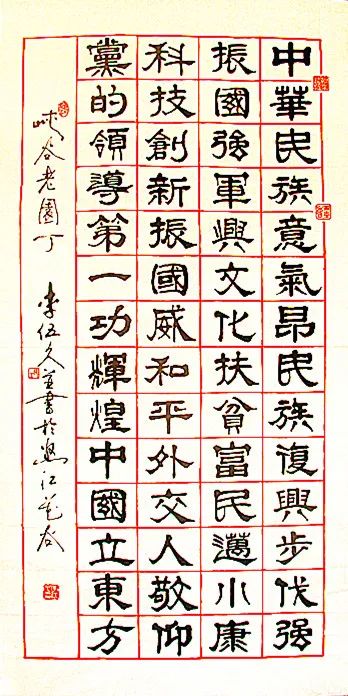 中華民族意氣昂民族復興步伐強
振國強軍興文化扶貧富民邁小康
科技創新振國威和平外交人敬仰
黨的領導第一功輝煌中國立東方
峽谷老園丁 李伍久 書於怒江